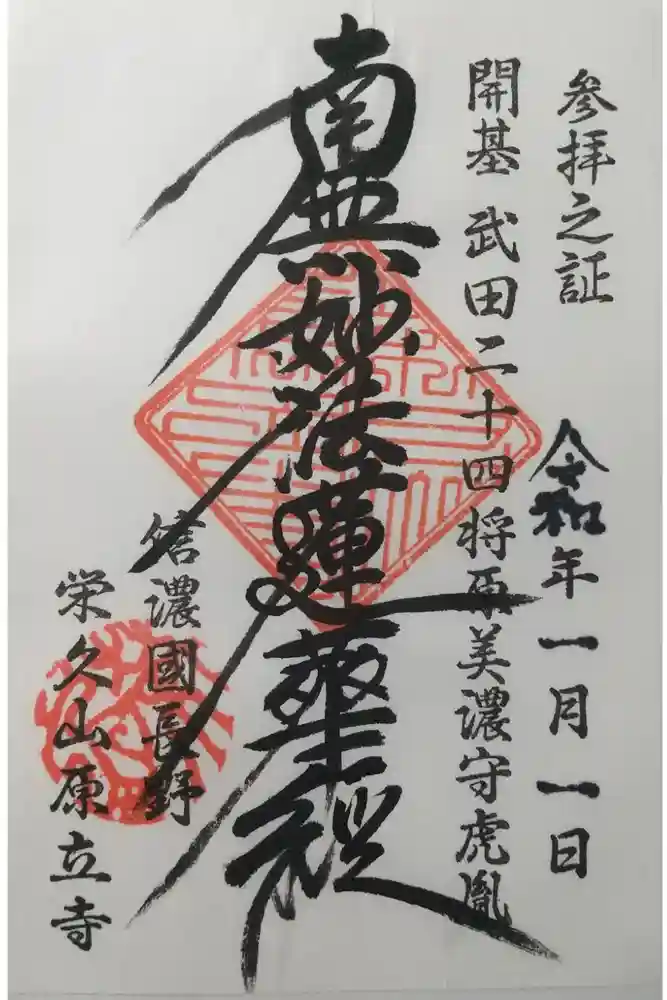 参拝之証
令和 年 一月 一日
開基 武田二十四将原美濃守虎胤
南無妙法蓮華経
信濃國長野
栄久山原立寺